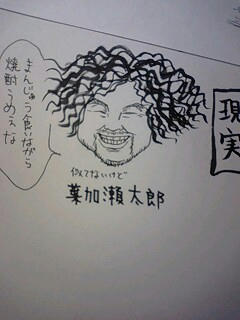 まんじゅう食いながら
焼酎うめぇな
似てないけど
葉加瀬太郎
現実